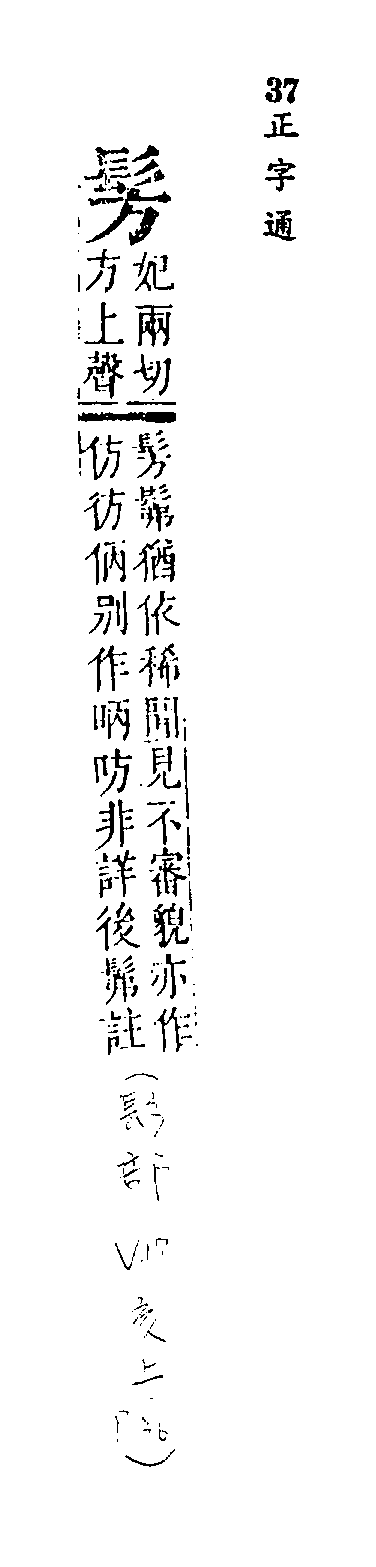 37正字通
髣
妃兩切
方上聲
髣髴猶依稀聞見不審貌亦作
仿彷俩别作昞昉非詳後髴註
(髟部 V.17 亥上 P.76)